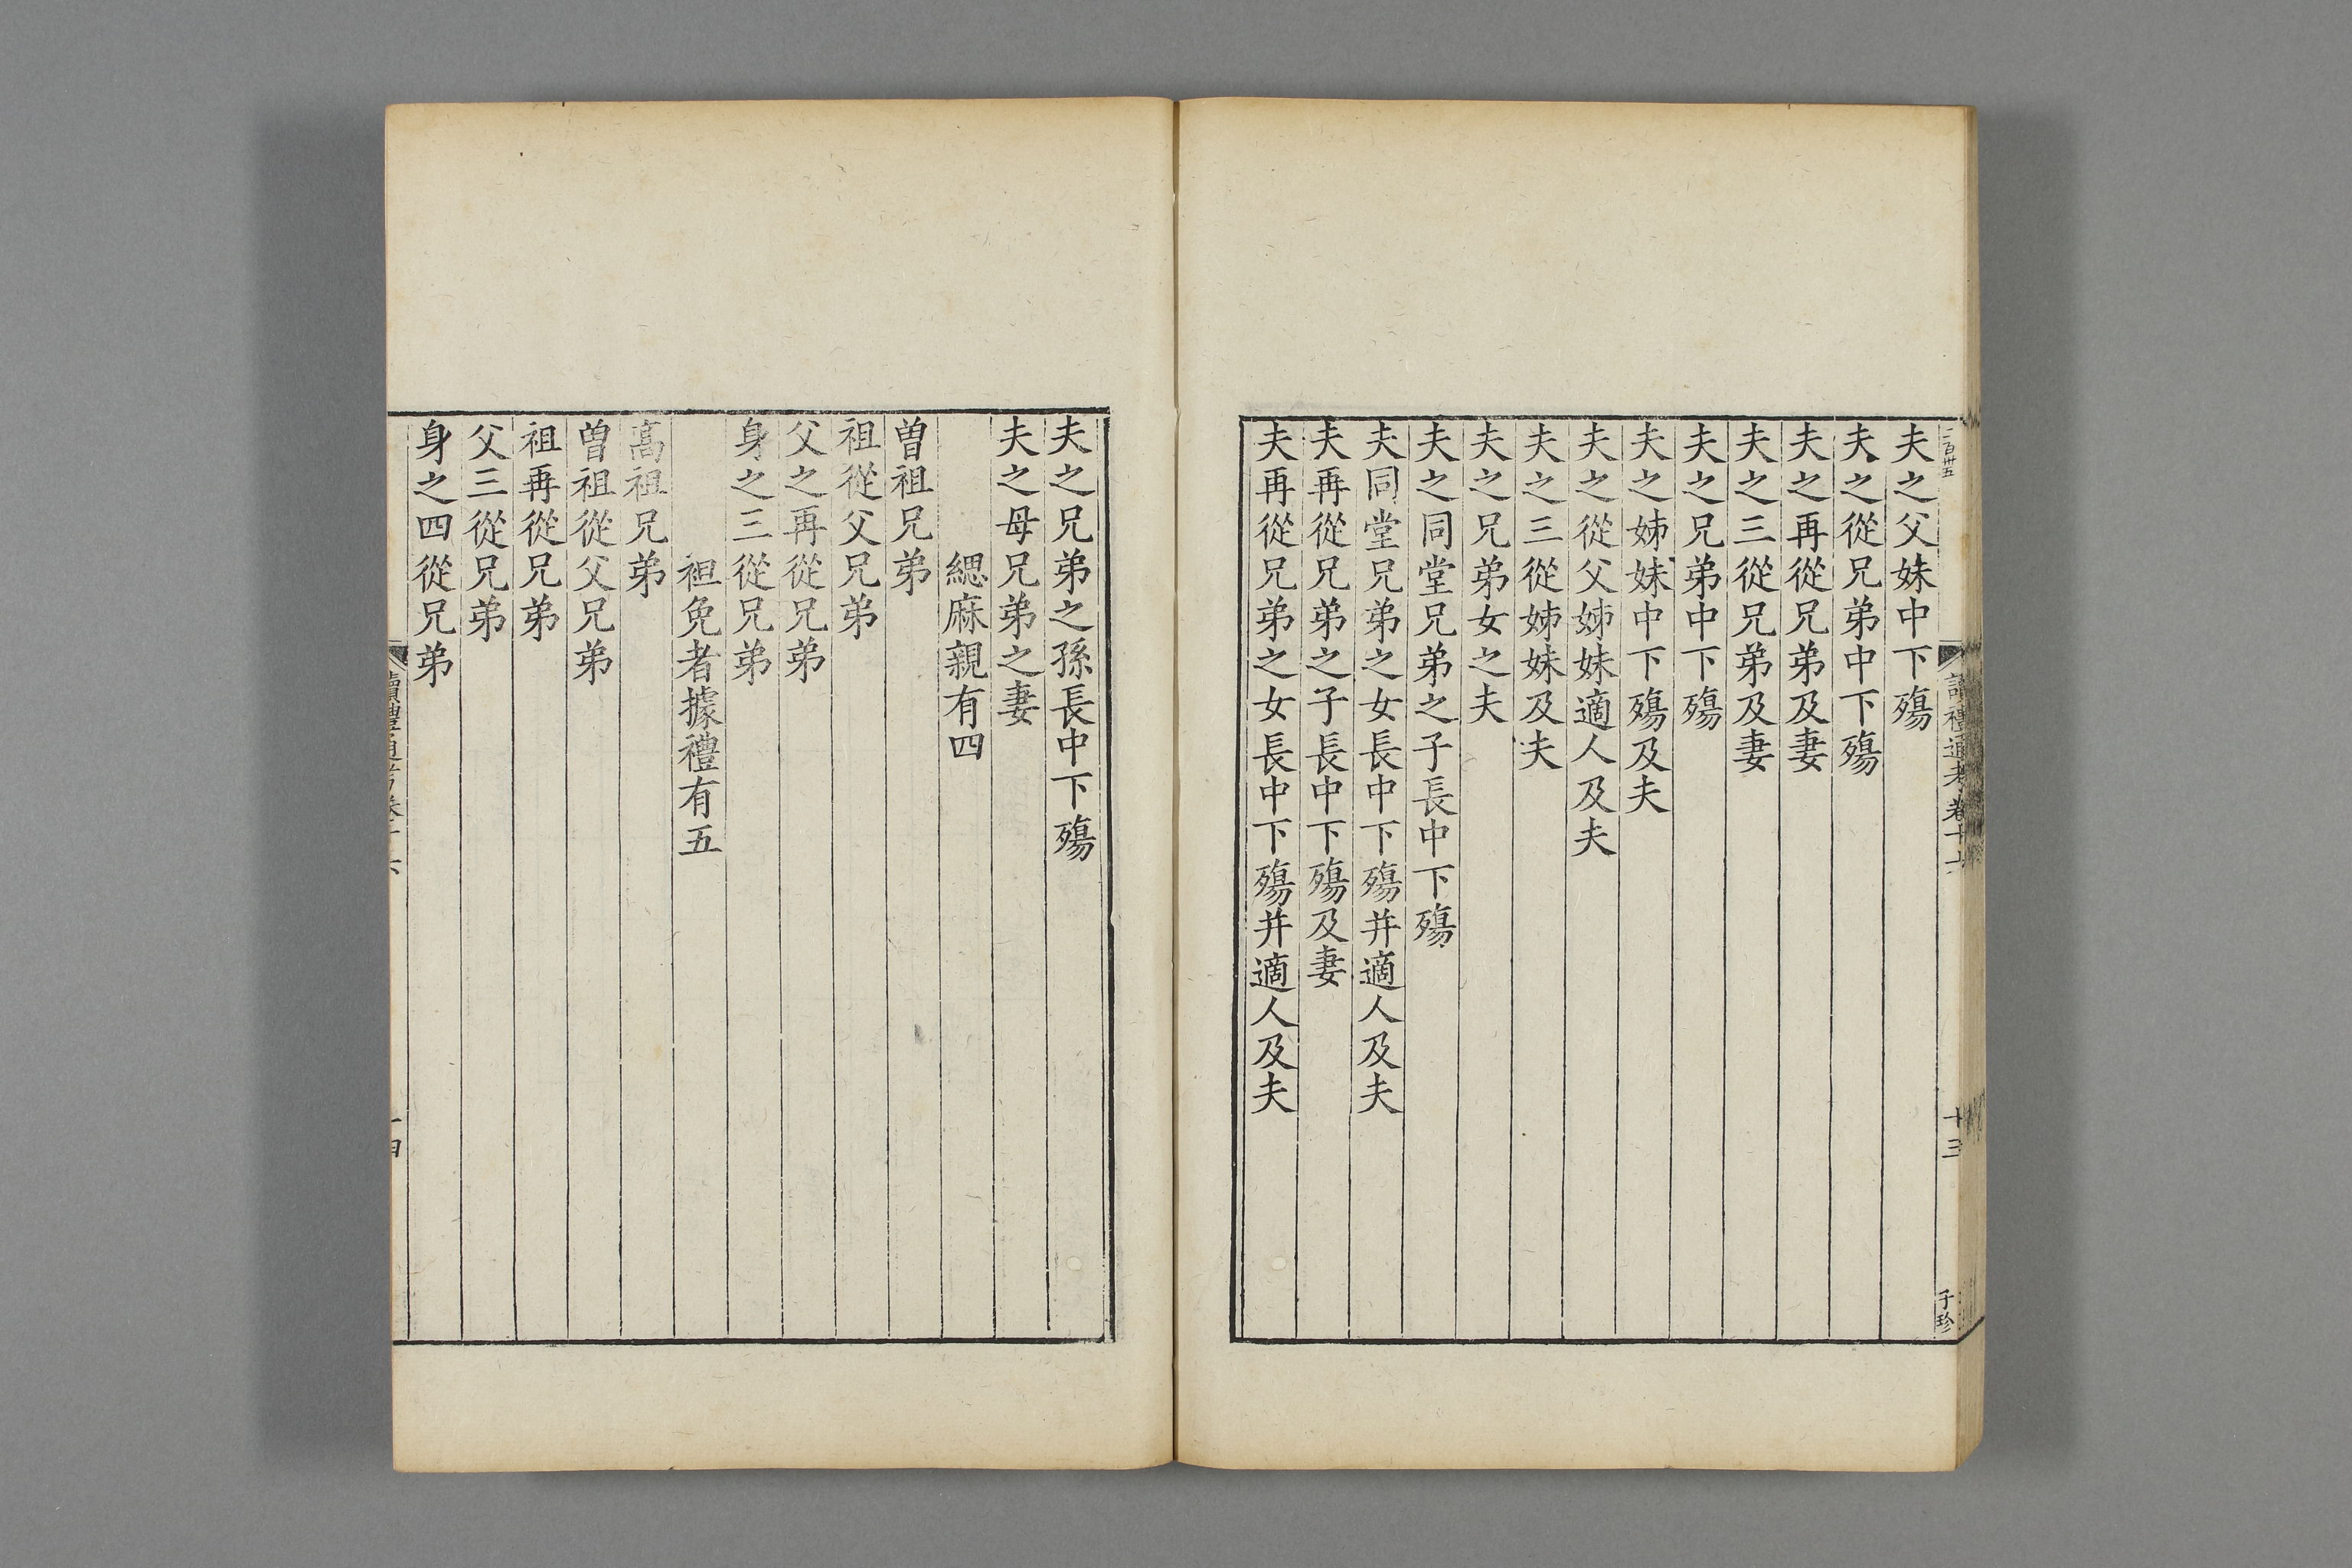 二百卅五
讀禮通考卷十六
十三
子珍
夫之父妹中下殤
夫之從兄弟中下殤
夫之再從兄弟及妻
夫之三從兄弟及妻
夫之兄弟中下殤
夫之姊妹中下殤及夫
夫之從父姊妹適人及夫
夫之三從姊妹及夫
夫之兄弟女之夫
夫之同堂兄弟之子長中下殤
夫同堂兄弟之女長中下殤并適人及夫
夫再從兄弟之子長中下殤及妻
夫再從兄弟之女長中下殤并適人及夫
夫之兄弟之孫長中下殤
夫之母兄弟之妻
緦麻親有四
曾祖兄弟
祖從父兄弟
父之再從兄弟
身之三從兄弟
袒免者據禮有五
高祖兄弟
曾祖從父兄弟
祖再從兄弟
父三從兄弟
身之四從兄弟
讀禮通考卷十六